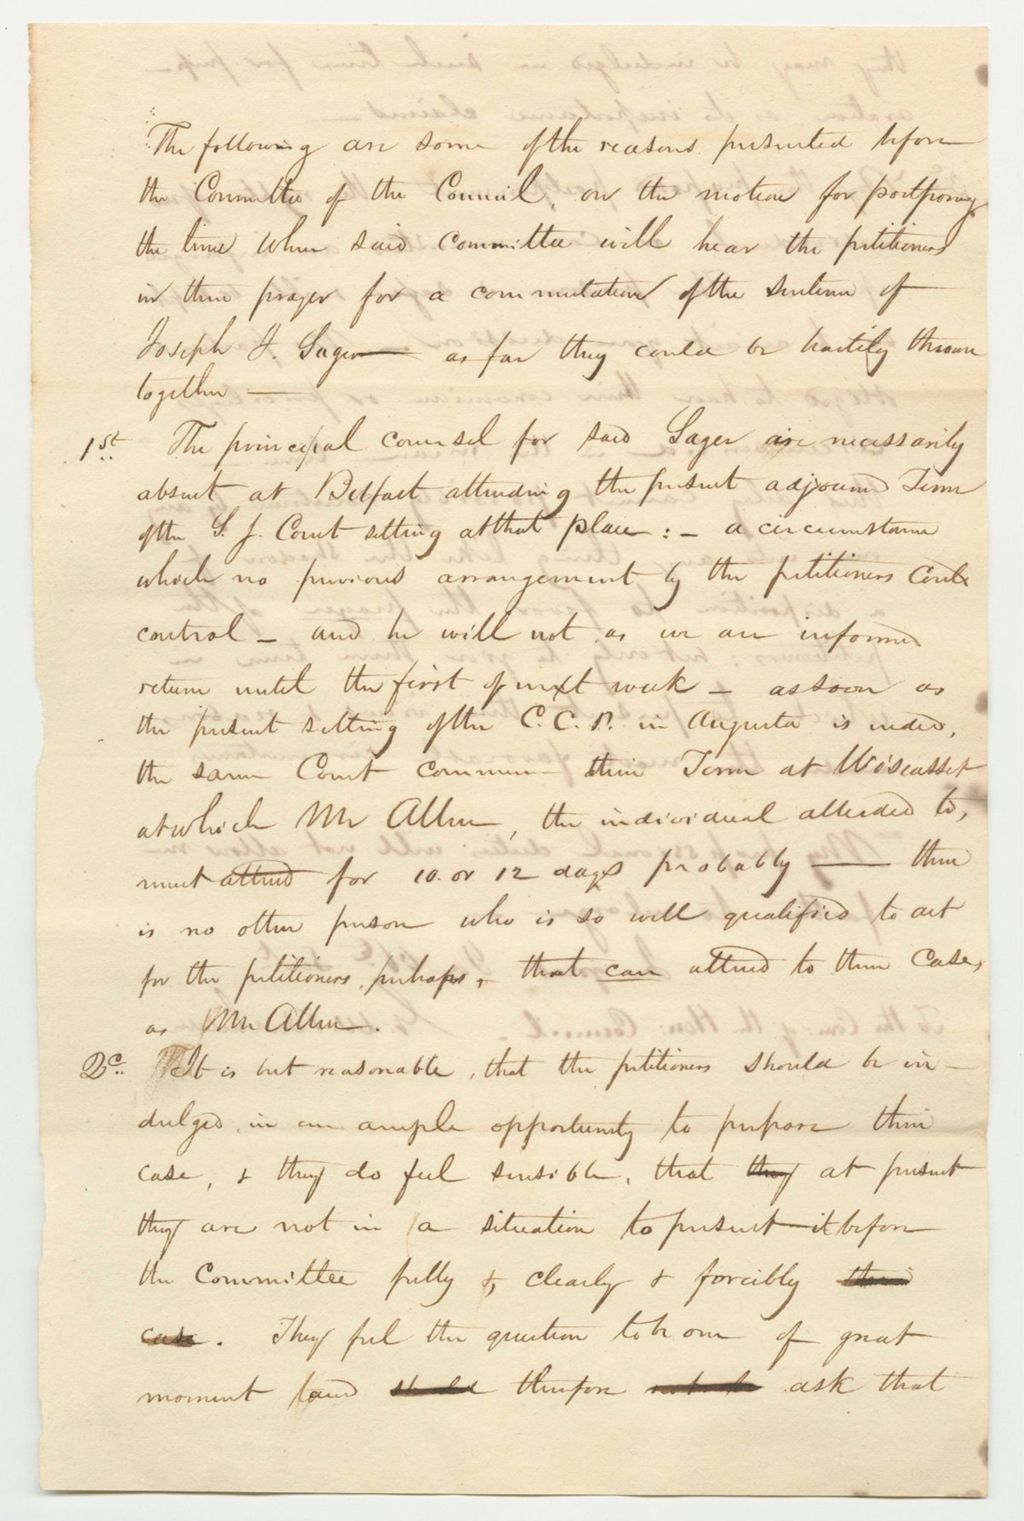 The following are some of the reasons presented before
the Committee of the Council, on the motion for postponing
the time when said Committee will hear the petitioners
in their prayer for a commutation of the sentence of
Joseph J. Sager — as far they could be hastily thrown
together —
1st The principal counsel for said Sager are necessarily
absent at Belfast attending the present adjourned Term
of the S. J. Court sitting at that place: – a circumstance
which no previous arrangement by the petitioners could
control – and he will not as we are informed
return until the first of next week – as soon as
the present sitting of the C. C. P. in Augusta is ended,
the same Court commence their Term at Wiscasset
at which Mr Allen, the individual alluded to,
must attend for 10 or 12 days probably — there
is no other person who is so well qualified to act
for the petitioners, perhaps, that can attend to their case,
as Mr Allen.
2d It is but reasonable, that the petitioners should be in-
dulged in an ample opportunity to prepare their
case, & they do feel sensible, that they at present
they are not in a situation to present it before
the Committee fully & clearly & forcibly their
case. They feel the question to be one of great
moment and should therefore ask that